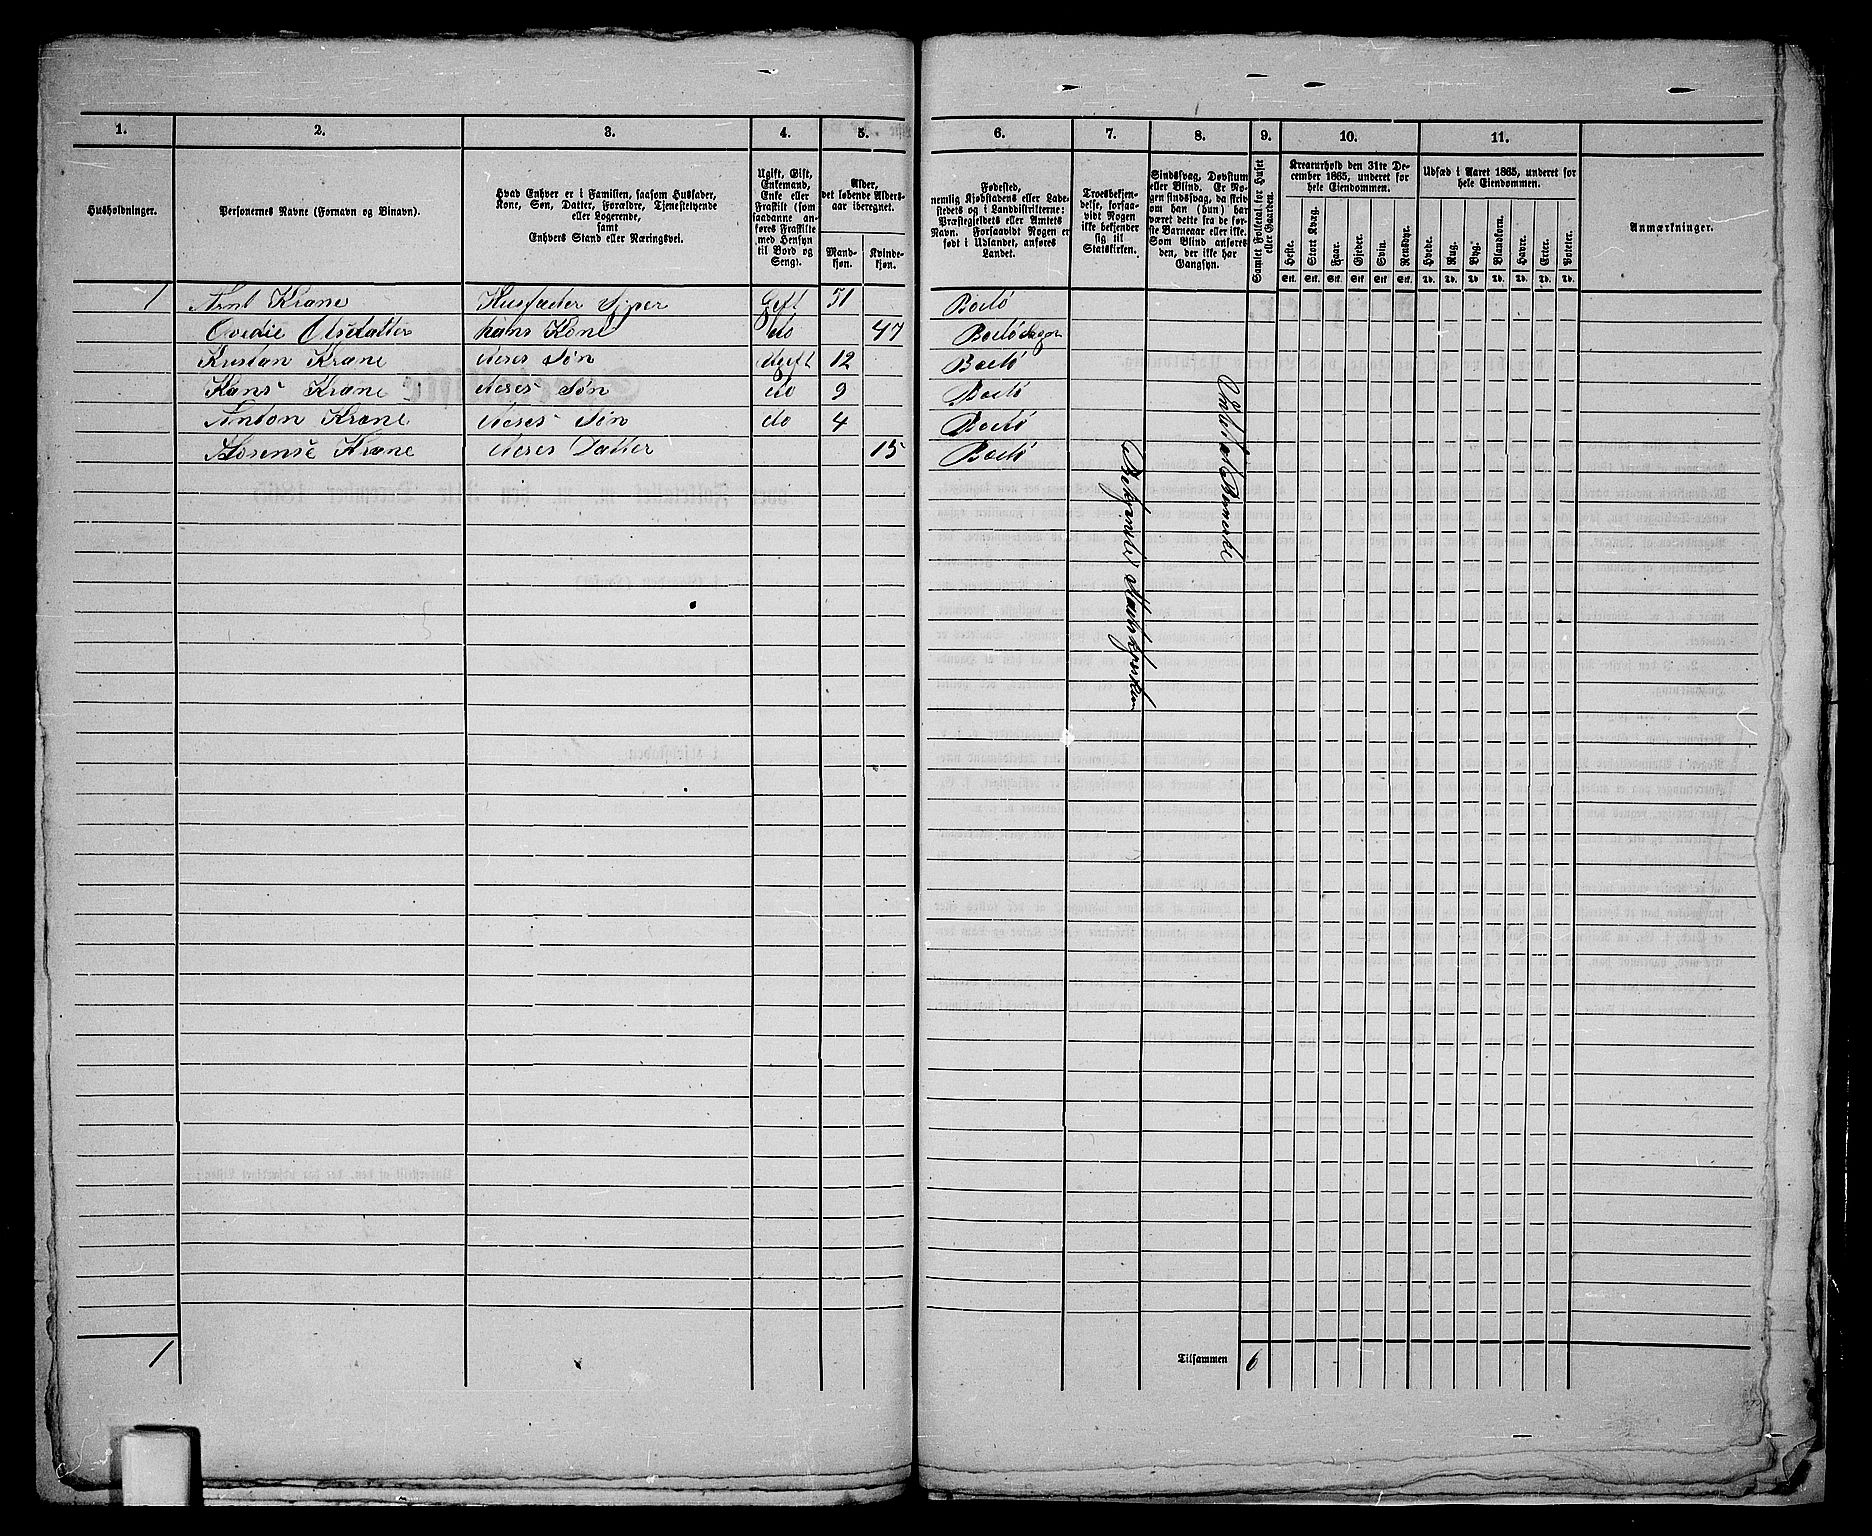 1. 2. 3. 4. 5. 6. 7. 8. 9. 10. 11.
Husholdninger.
Personernes Navne (Fornavn og Binavn).
Hvad Enhver er i Familien, saasom Husfader,
Kone, Søn, Datter, Forældre, Tjenestetyende
eller Logerende,
samt
Enhvers Stand eller Næringsvei.
Ugift, Gift,
Enkemand,
Enke eller
Fraskilt (som
saadanne an-
føres Fraskilte
med Hensyn
til Bord og
Seng).
Alder,
det løbende Alders-
aar iberegnet.
Mand-
kjøn.
Kvinde-
kjøn.
Fødested,
nemlig Kjøbstadens eller Lade-
stedets og i Landdistrikterne:
Præstegjeldets eller Amtets
Navn. Forsaavidt Nogen er
født i Udlandet, anføres
Landet.
Troesbekjen-
delse, forsaa-
vidt Nogen
ikke bekjender
sig til
Statskirken.
Sindssvag, Døvstum
eller Blind. Er No-
gen sindssvag, da skriv
om han (hun) har
været dette fra de før-
ste Barneaar eller ikke.
Som Blind anføres
den, der ikke har
Gangsyn.
Samlet Folketal for Huset
eller Gaarden.
Kreaturhold den 31te De-
cember 1865, underet for
hele Eiendommen.
Heste. Stort Kvæg. Faar. Gjeder. Svin. Rensdyr.
Stk. Stk. Stk. Stk. Stk. Stk.
Udsæd i Aaret 1865, underet for
hele Eiendommen.
Hvede. Rug. Byg. Blandkorn. Havre. Erter. Poteter.
Td. Td. Td. Td. Td. Td. Td.
Anmærkninger.
1 Arnt Krane Husfader Skiper Gift 51 Bodø
Ovedie Olsdatter hans Kone do 47 Bodø Sogn
Kristan Krane deres Søn Ugift 12 Bodø
Hans Krane deres Søn do 9 Bodø
Anton Krane deres Søn do 4 Bodø
Hosense Krane deres Datter 15 Bodø
Statskirken
1 Tilsammen 6